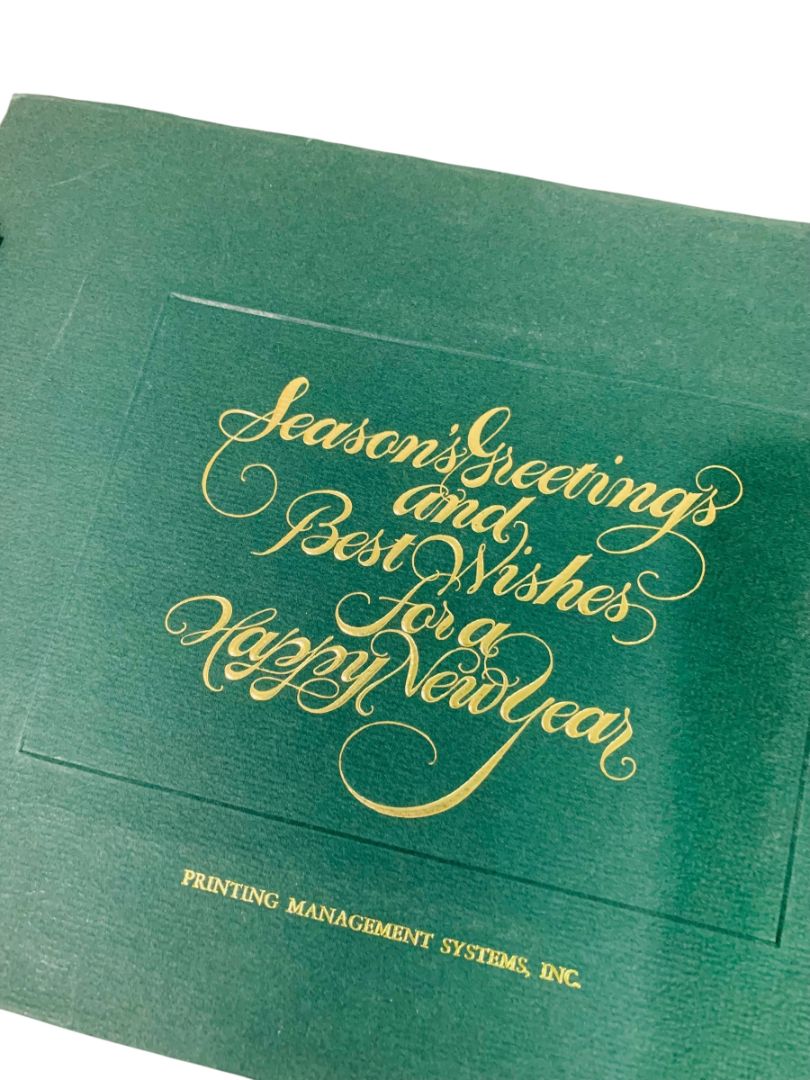 Season's Greetings
and
Best Wishes
for a
Happy New Year
PRINTING MANAGEMENT SYSTEMS, INC.